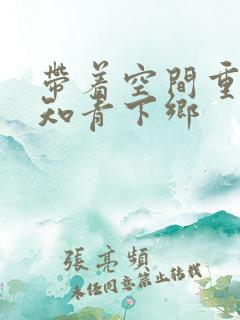 帶着空間重
知青下鄉
張亮頻
未经同意禁止转载